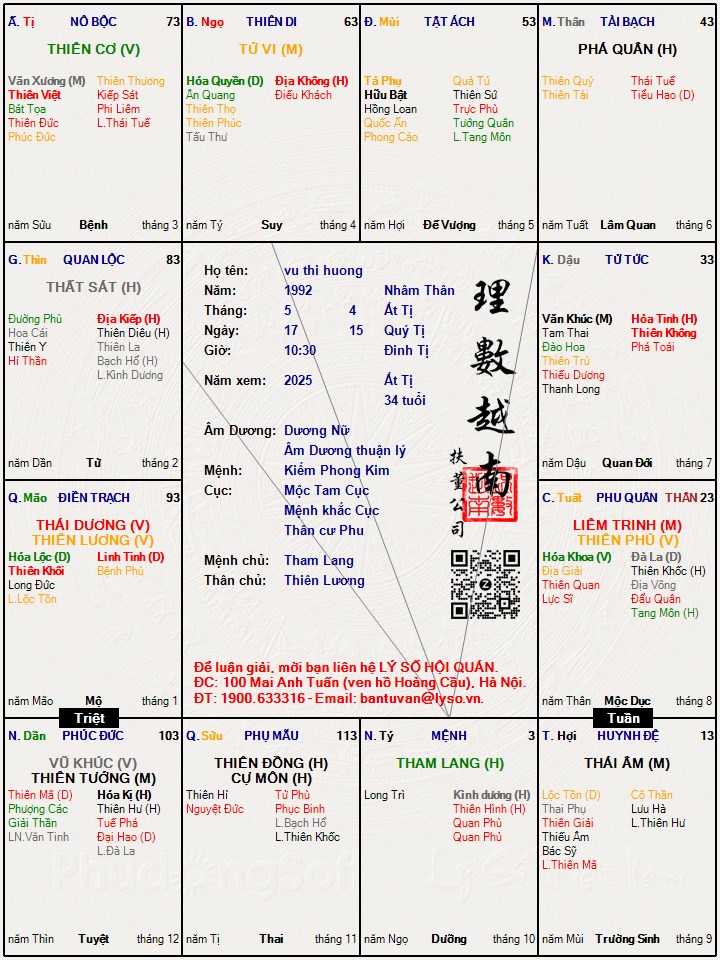 Ấ. Tị NÔ BỘC 73
THIÊN CƠ (V)
Văn Xương (M) Thiên Thương
Thiên Việt Kiếp Sát
Bát Tọa Phi Liêm
Thiên Đức L.Thái Tuế
Phúc Đức
năm Sửu Bệnh tháng 3
B. Ngọ THIÊN DI 63
TỬ VI (M)
Hóa Quyền (D) Địa Không (H)
Ân Quang Điếu Khách
Thiên Thọ
Thiên Phúc
Tấu Thư
năm Tý Suy tháng 4
Đ. Mùi TẬT ÁCH 53
Tả Phụ Quả Tú
Hữu Bật Thiên Sứ
Hồng Loan Trực Phù
Quốc Ấn Tướng Quân
Phong Cáo L.Tang Môn
năm Hợi Đế Vượng tháng 5
M. Thân TÀI BẠCH 43
PHÁ QUÂN (H)
Thiên Quý Thái Tuế
Thiên Tài Tiểu Hao (D)
năm Tuất Lâm Quan tháng 6
G. Thìn QUAN LỘC 83
THẤT SÁT (H)
Đường Phù Địa Kiếp (H)
Hoa Cái Thiên Diêu (H)
Thiên Y Thiên La
Hỉ Thần Bạch Hổ (H)
L.Kình Dương
năm Dần Tử tháng 2
Họ tên: vu thi huong
Năm: 1992 Nhâm Thân
Tháng: 5 4 Ất Tị
Ngày: 17 15 Quý Tị
Giờ: 10:30 Đinh Tị
Năm xem: 2025 Ất Tị
34 tuổi
Âm Dương: Dương Nữ
Âm Dương thuận lý
Mệnh: Kiếm Phong Kim
Cục: Mộc Tam Cục
Mệnh khắc Cục
Thân cư Phu
Mệnh chủ: Tham Lang
Thân chủ: Thiên Lương
理數越南
扶董公司
Để luận giải, mời bạn liên hệ LÝ SỐ HỘI QUÁN.
ĐC: 100 Mai Anh Tuấn (ven hồ Hoàng Cầu), Hà Nội.
ĐT: 1900.633316 - Email: bantuvan@lyso.vn.
K. Dậu TỬ TỨC 33
Văn Khúc (M) Hỏa Tinh (H)
Tam Thai Thiên Không
Đào Hoa Phá Toái
Thiên Trù
Thiếu Dương
Thanh Long
năm Dậu Quan Đới tháng 7
Q. Mão ĐIỀN TRẠCH 93
THÁI DƯƠNG (V)
THIÊN LƯƠNG (V)
Hóa Lộc (D) Linh Tinh (D)
Thiên Khôi Bệnh Phù
Long Đức
L.Lộc Tồn
năm Mão Mộ tháng 1
C. Tuất PHU QUÂN THÂN 23
LIÊM TRINH (M)
THIÊN PHỦ (V)
Hóa Khoa (V) Đà La (D)
Địa Giải Thiên Khốc (H)
Thiên Quan Địa Võng
Lực Sĩ Đẩu Quân
Tang Môn (H)
năm Thân Mộc Dục tháng 8
Triệt
Tuần
N. Dần PHÚC ĐỨC 103
VŨ KHÚC (V)
THIÊN TƯỚNG (M)
Thiên Mã (D) Hóa Kị (H)
Phượng Các Thiên Hư (H)
Giải Thần Tuế Phá
LN.Văn Tinh Đại Hao (D)
L.Đà La
năm Thìn Tuyệt tháng 12
Q. Sửu PHỤ MẪU 113
THIÊN ĐỒNG (H)
CỰ MÔN (H)
Thiên Hỉ Tử Phù
Nguyệt Đức Phục Binh
L.Bạch Hổ
L.Thiên Khốc
năm Tị Thai tháng 11
N. Tý MỆNH 3
THAM LANG (H)
Long Trì Kình dương (H)
Thiên Hình (H)
Quan Phù
Quan Phủ
năm Ngọ Dưỡng tháng 10
T. Hợi HUYNH ĐỆ 13
THÁI ÂM (M)
Lộc Tồn (D) Cô Thần
Thai Phụ Lưu Hà
Thiên Giải L.Thiên Hư
Thiếu Âm
Bác Sỹ
L.Thiên Mã
năm Mùi Trường Sinh tháng 9